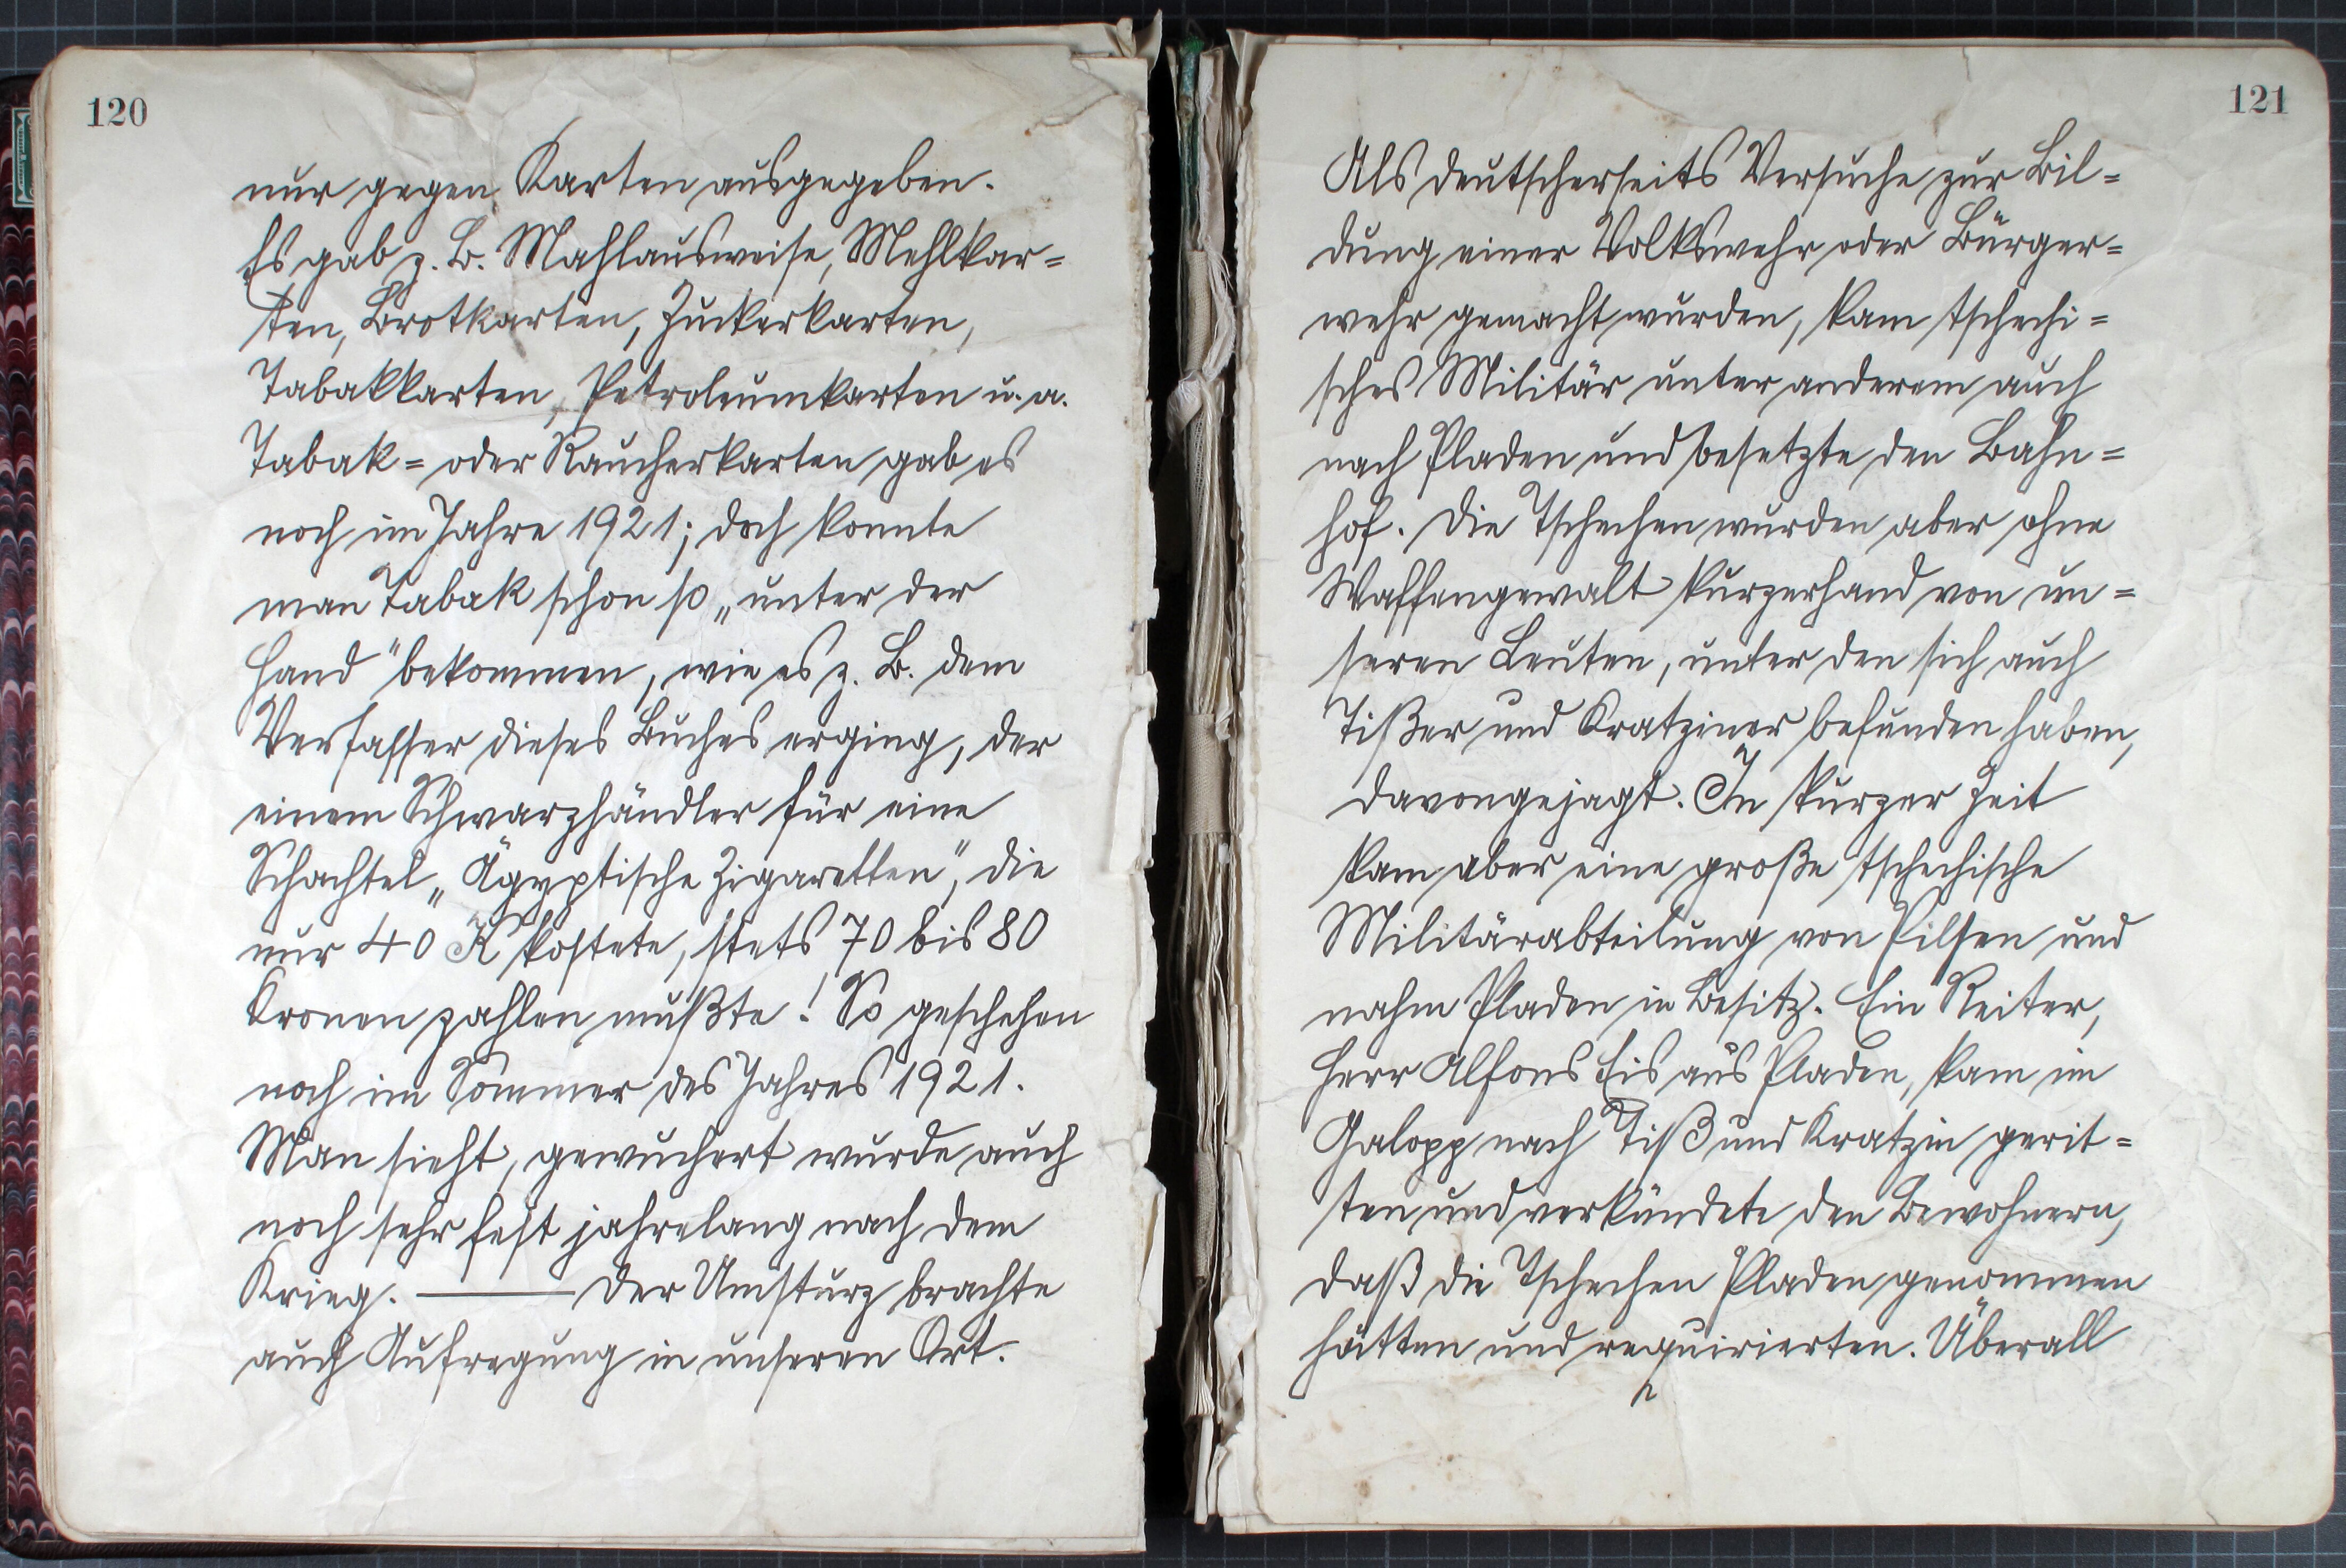 120
nur gegen Karten ausgegeben.
Es gab z. B. Mahlausweise, Mehlkar=
ten, Brotkarten, Zuckerkarten,
Tabakkarten, Petroleumkarten u. a.
Tabak= oder Raucherkarten gab es
noch im Jahre 1921; doch konnte
man Tabak schon so „unter der
Hand" bekommen, wie es z. B. dem
Verfasser dieses Buches erging, der
einem Schwarzhändler für eine
Schachtel „Ägyptische Zigaretten", die
nur 40 K kostete, stets 70 bis 80
Kronen zahlen mußte! So geschehen
noch im Sommer des Jahres 1921.
Man sieht, gewuchert wurde auch
noch sehr fest jahrelang nach dem
Krieg. ——— Der Umsturz brachte
auch Aufregung in unseren Ort.
121
Als deutscherseits Versuche zur Bil=
dung einer Volkswehr oder Bürger=
wehr gemacht wurden, kam tschechi=
sches Militär unter anderem auch
nach Pladen und besetzte den Bahn=
hof. Die Tschechen wurden aber ohne
Waffengewalt kurzerhand von un=
seren Leuten, unter den sich auch
Tißer und Kratziner befunden haben,
davongejagt. In kurzer Zeit
kam aber eine große tschechische
Militärabteilung von Pilsen und
nahm Pladen in Besitz. Ein Reiter,
Herr Alfons Eis aus Pladen, kam im
Galopp nach Tiß und Kratzin gerit=
ten und verkündete den Bewohnern,
daß die Tschechen Pladen genommen
hätten und requirierten. Überall